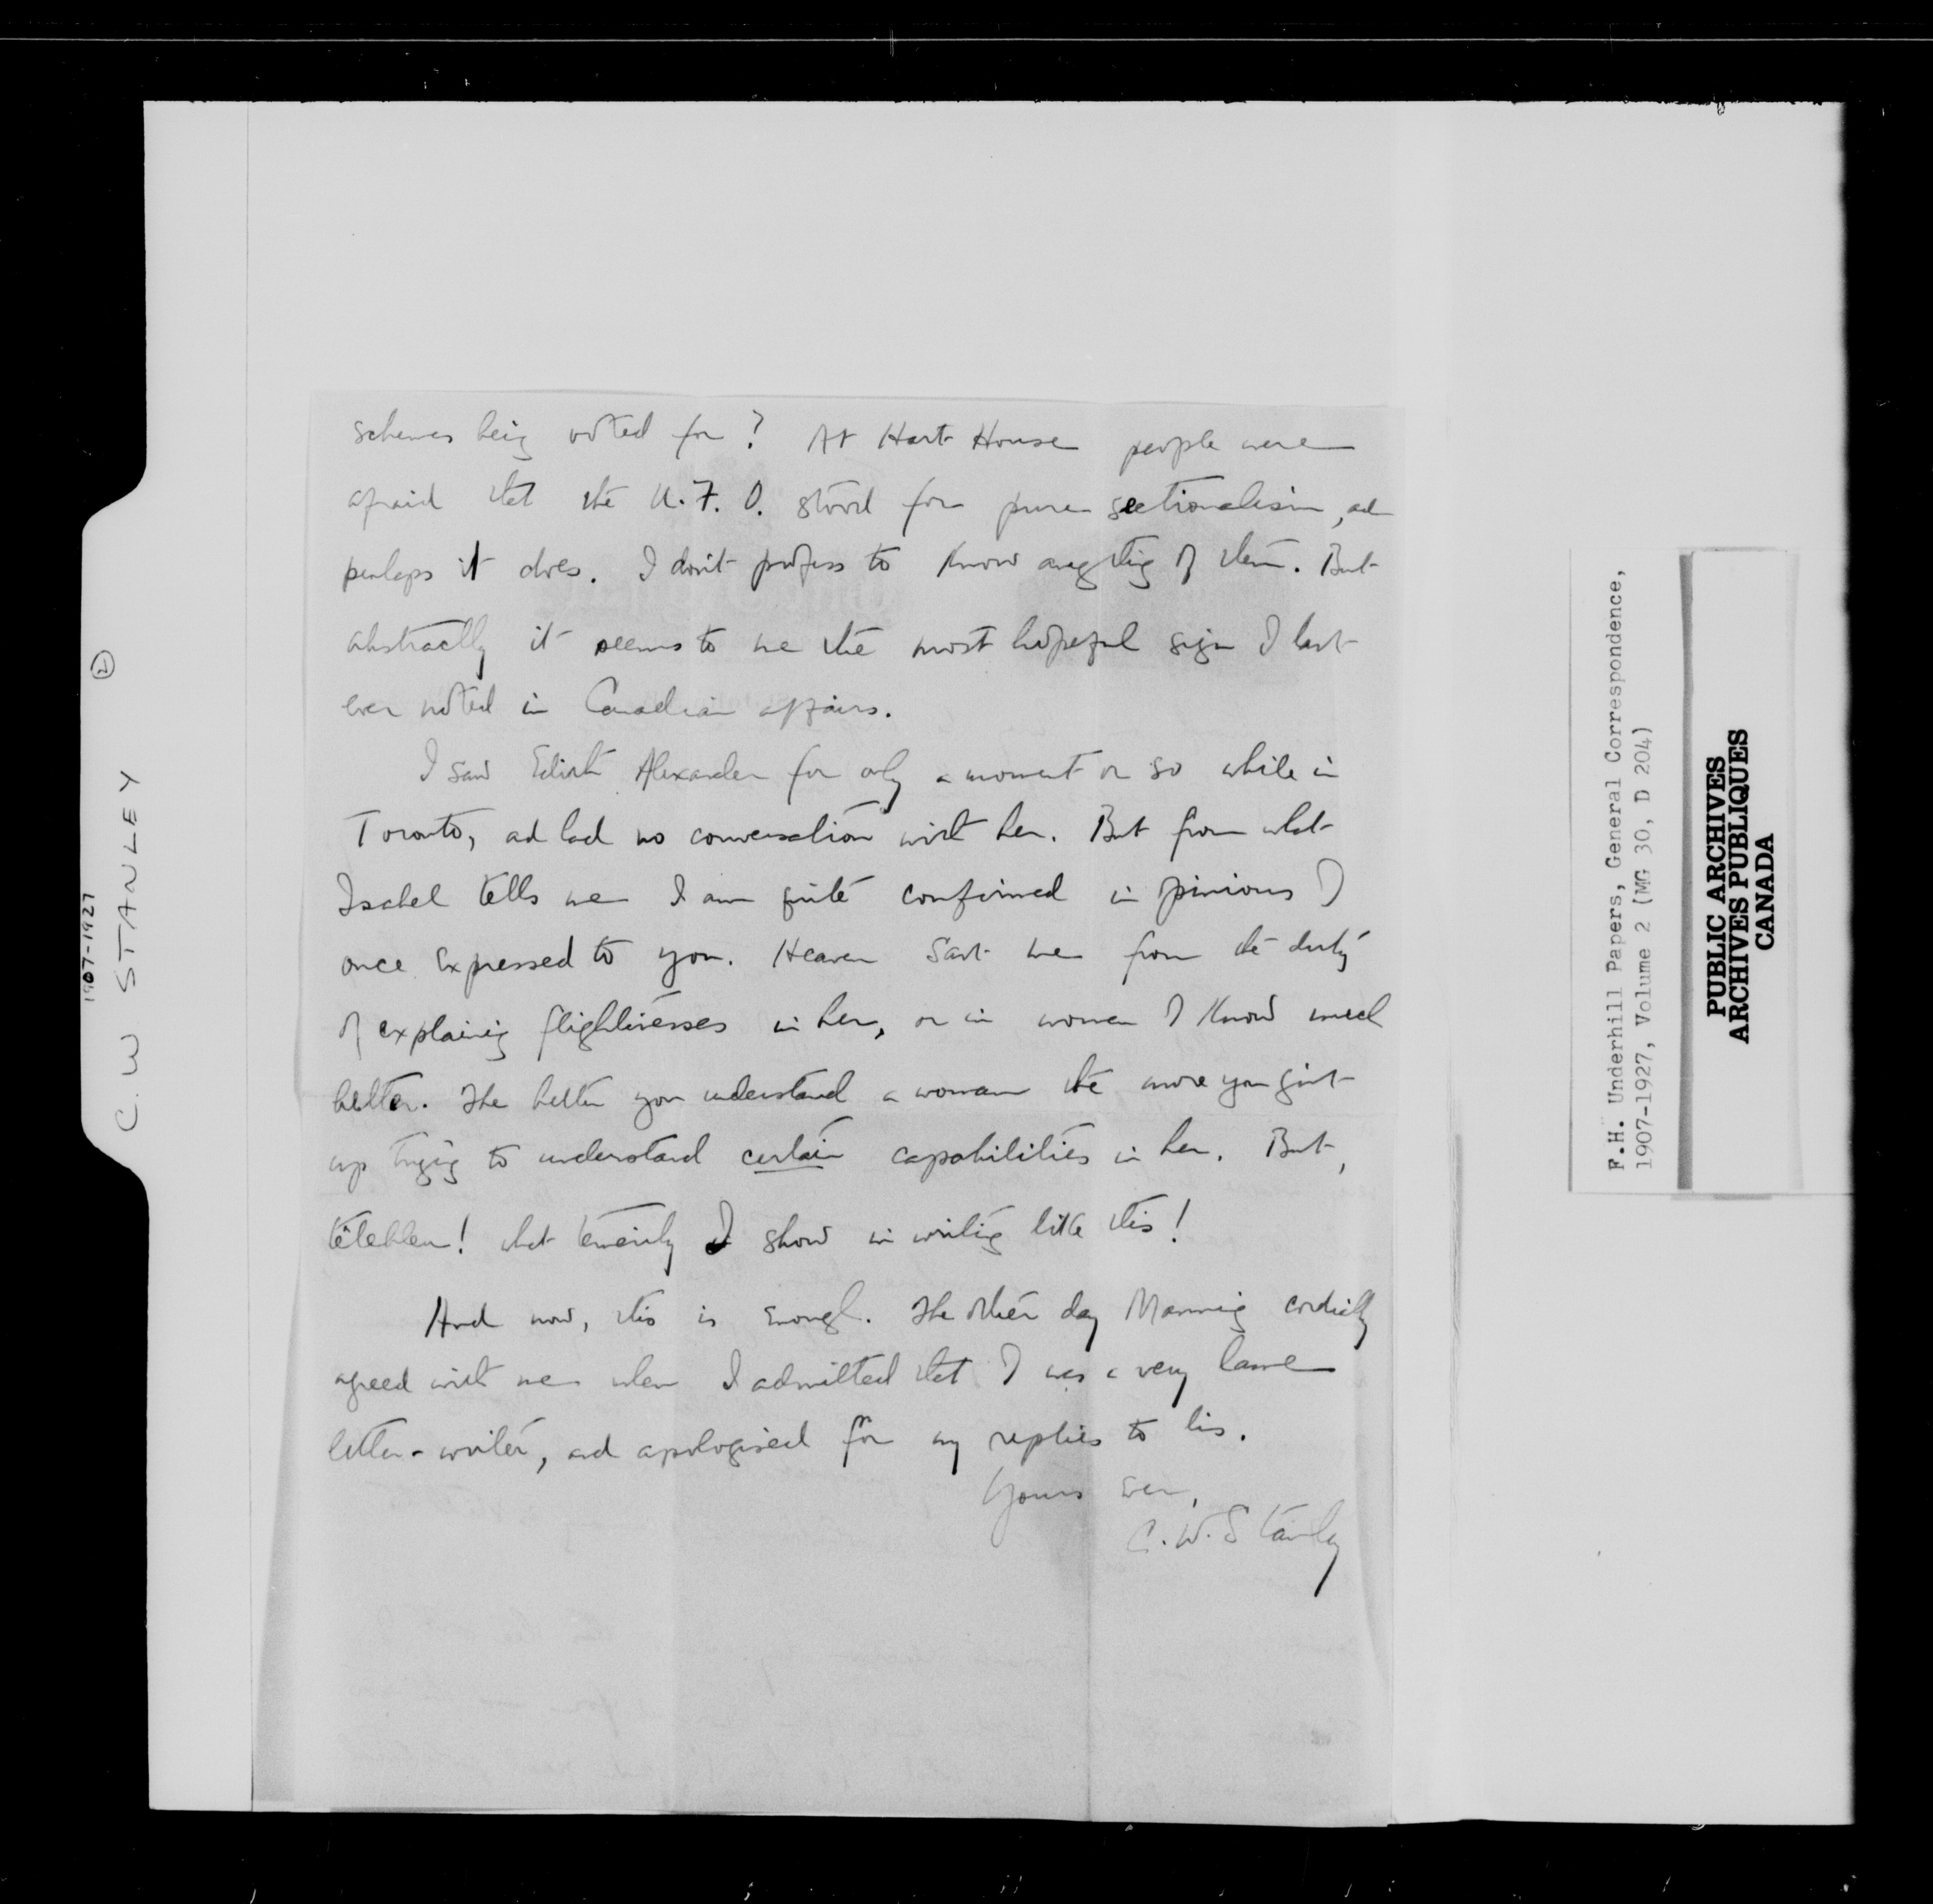 schemes being voted for? At Hart House people were
afraid that the U.F.O. stood for pure sectionalism, and
perhaps it does. I don't profess to know anything of them. But
abstractly it seems to me the most hopeful sign I have
ever noted in Canadian affairs.
I saw Edith Alexander for only a moment or so while in
Toronto, and had no conversation with her. But from what
Isabel tells me I am quite confirmed in opinions I
once expressed to you. Heaven save me from the duty
of explaining flightinesses in her, or in women I know much
better. The better you understand a woman the more you give
up trying to understand certain capabilities in her. But,
têtebleu! what temerity I show in writing like this!
And now, this is enough. The other day Manning cordially
agreed with me when I admitted that I was a very lame
letter-writer, and apologised for my replies to his.
Yours ever,
C.W. Stanley
1907-1927
C. W STANLEY
2
F.H. Underhill Papers, General Correspondence,
1907-1927, Volume 2 (MG 30, D 204)
PUBLIC ARCHIVES
ARCHIVES PUBLIQUES
CANADA